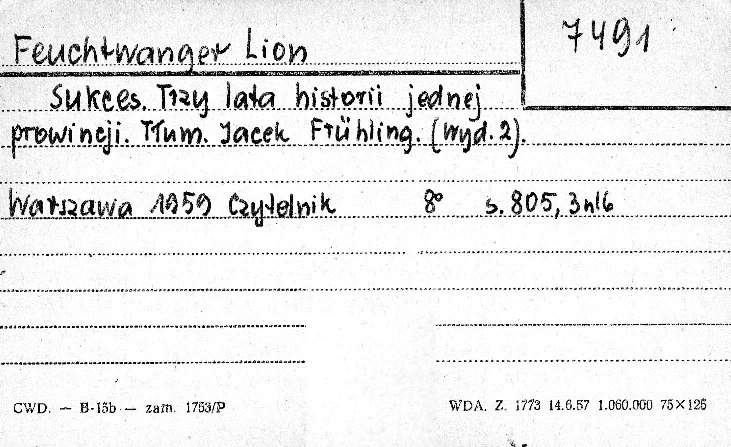 7491
Feuchtwanger Lion
Sukces. Trzy lata historii jednej
prowincji. Tłum. Jacek Frühling. (Wyd. 2).
Warszawa 1959 Czytelnik 8° s. 805, 3 nlb
CWD. — B-15b — zam. 1753/P
WDA. Z. 1773 14.6.57 1.060.000 75×125